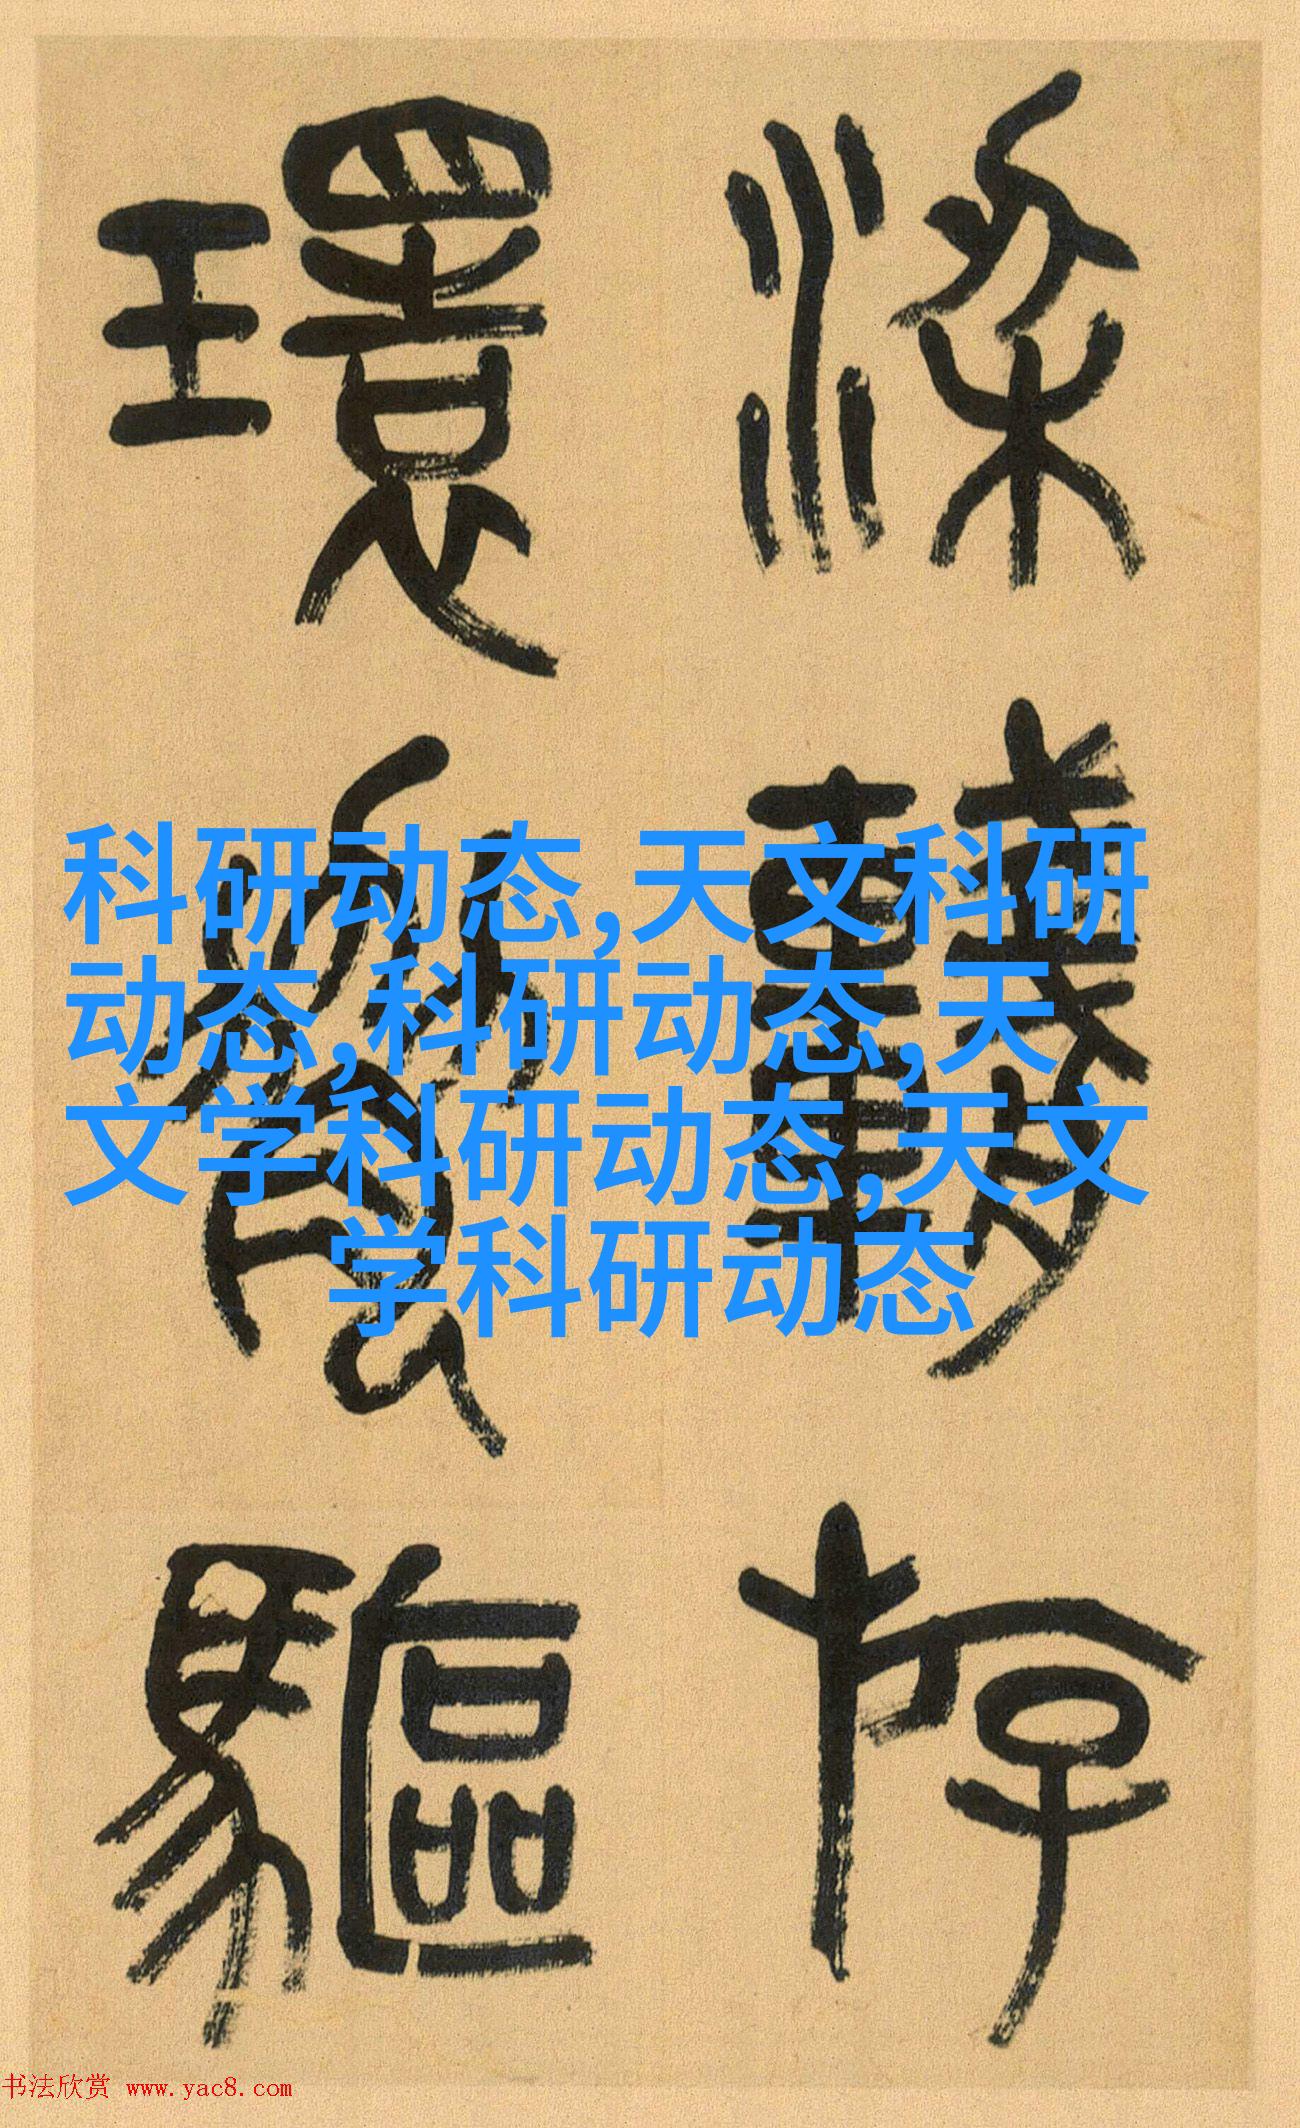 科研动态,天文科研
动态,科研动态,天
文学科研动态,天文
学科研动态
存
環
驅
书法欣赏 www.yac8.com